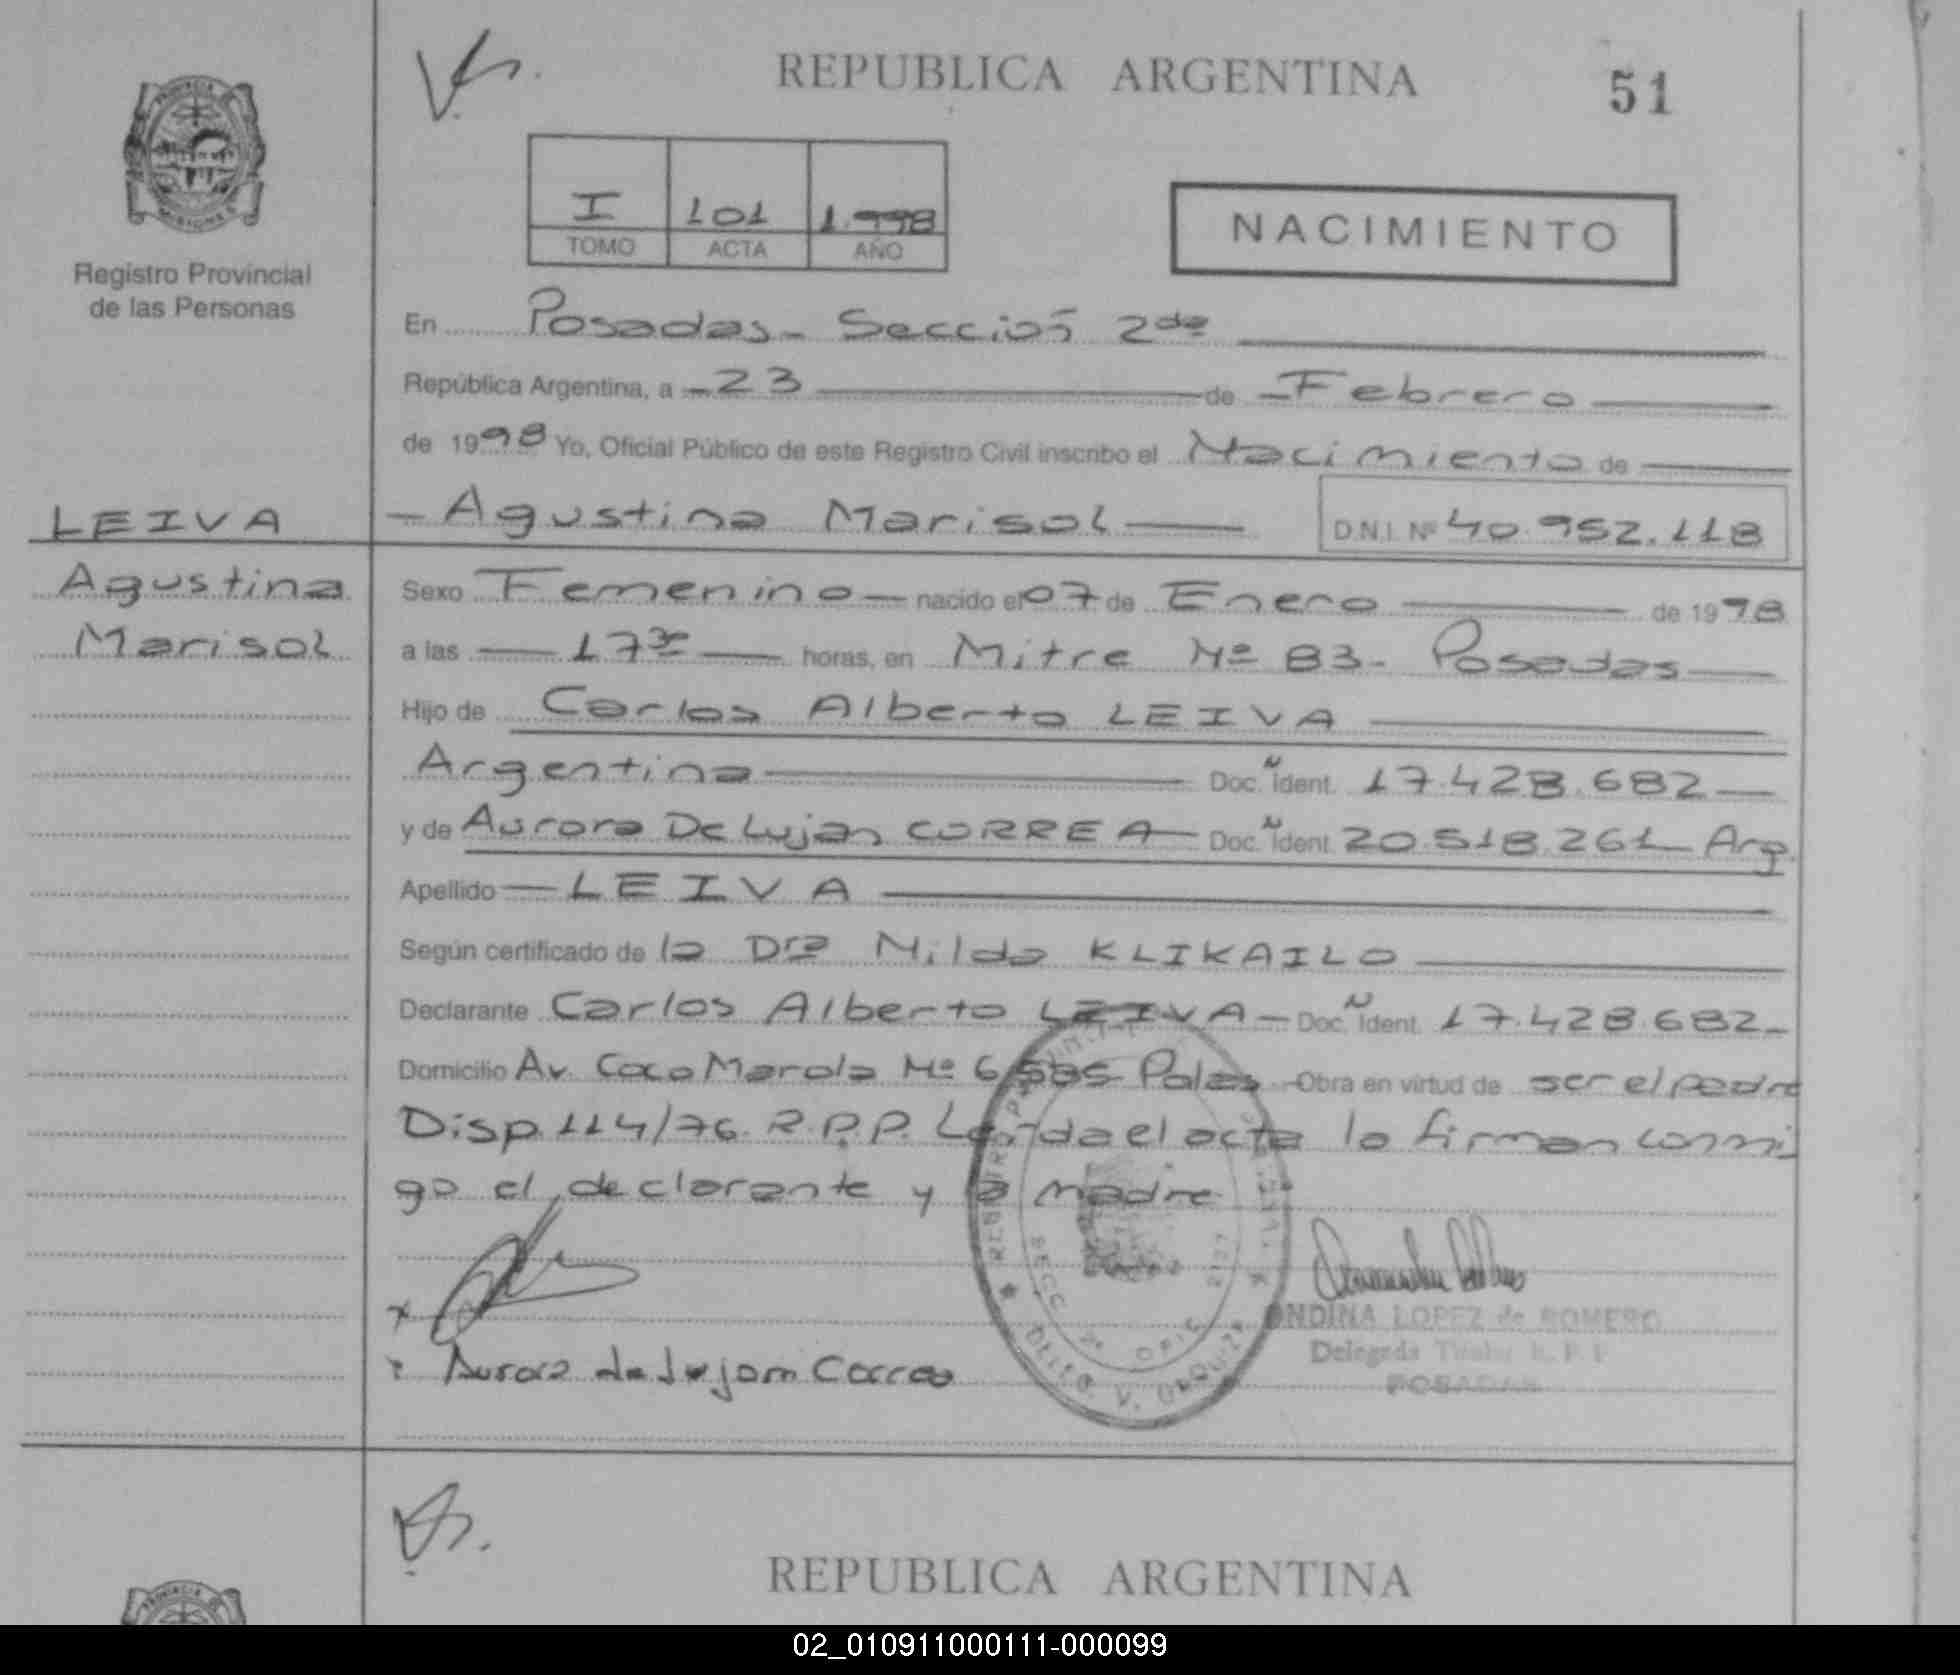 REPUBLICA ARGENTINA
51
I 101 1.998
TOMO ACTA AÑO
NACIMIENTO
Registro Provincial
de las Personas
En Posadas - Sección 2da
República Argentina, a - 23 de - Febrero
de 1998 Yo, Oficial Público de este Registro Civil inscribo el Nacimiento de
LEIVA
Agustina
Marisol
- Agustina Marisol D.N.I. Nº 40.952.118
Sexo Femenino - nacido el 07 de Enero de 1998
a las 17 30 horas, en Mitre Nº 83 - Posadas
Hijo de Carlos Alberto LEIVA
Argentina Doc. Ident. 17.428.682
y de Aurora De Lujan CORREA - Doc. Ident. 20.518.261 Arg.
Apellido LEIVA
Según certificado de la Dra Nilda KLIKAILO
Declarante Carlos Alberto LEIVA - Doc. Ident. 17.428.682 -
Domicilio Av. Coco Marola Nº 6505 Pdas - Obra en virtud de ser el padre
Disp. 114/76. R.P.P. Leida el acta la firman conmi
go el declarante y la madre
Aurora de Lujan Correa
ONDINA LOPEZ de ROMERO
Delegada Titular R. P. P.
POSADAS
REPUBLICA ARGENTINA
02_010911000111-000099